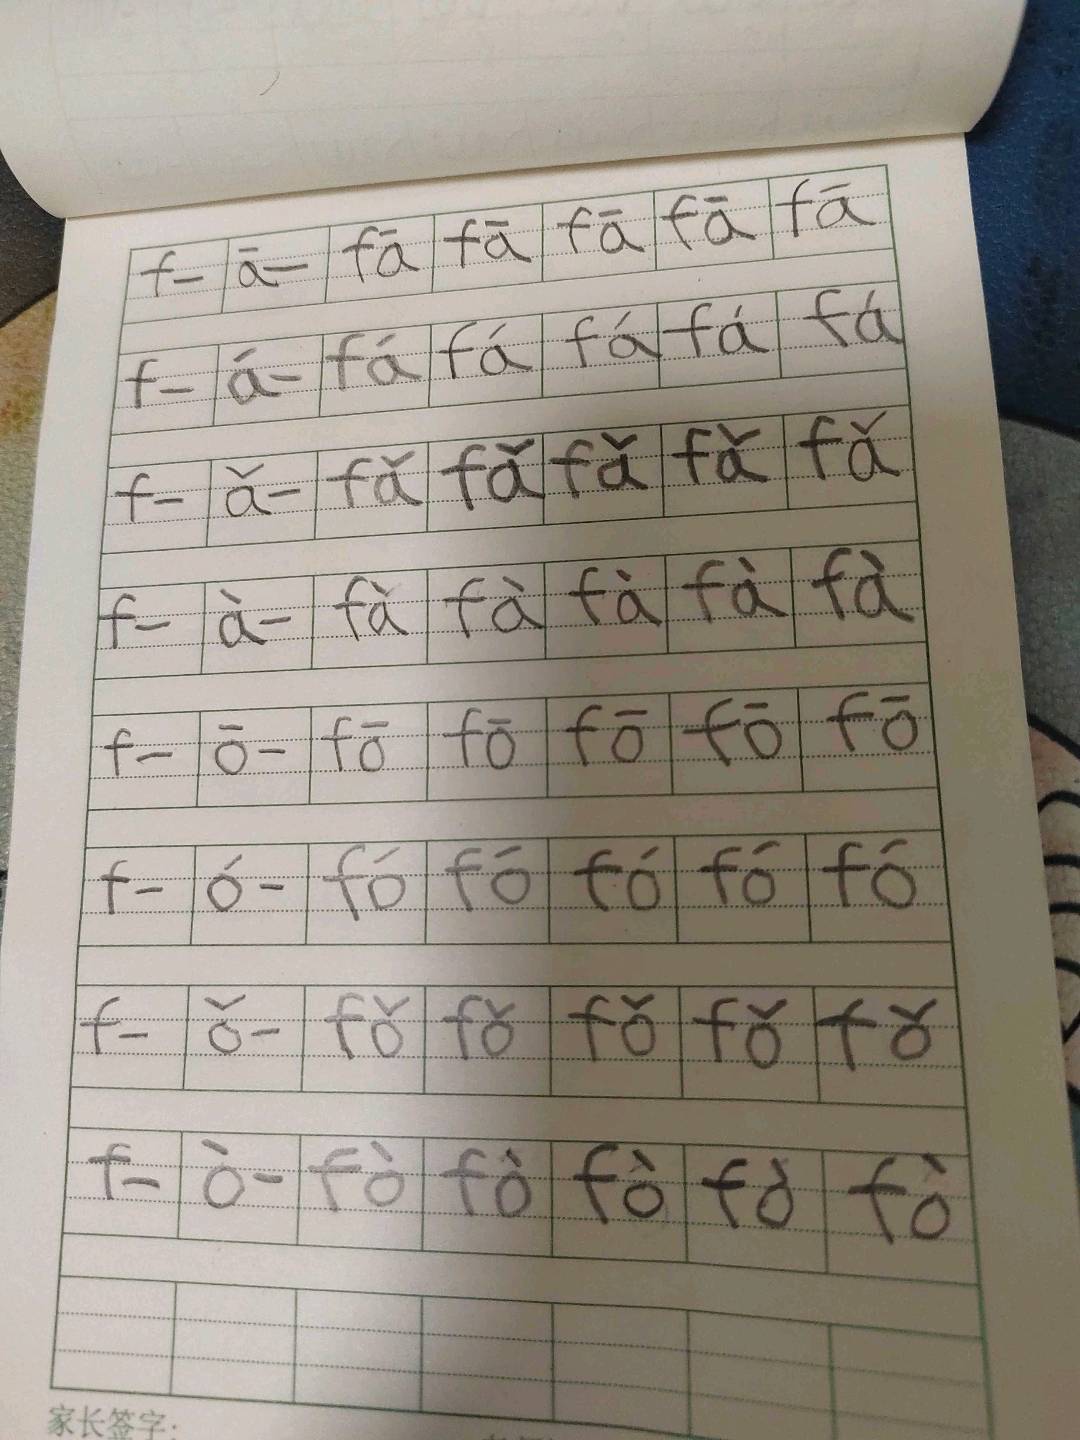 f- ā- fā fā fā fā fā
f- á- fá fá fá fá fá
f- ǎ- fǎ fǎ fǎ fǎ fǎ
f- à- fà fà fà fà fà
f- ō- fō fō fō fō fō
f- ó- fó fó fó fó fó
f- ǒ- fǒ fǒ fǒ fǒ fǒ
f- ò- fò fò fò fò fò
家长签字: